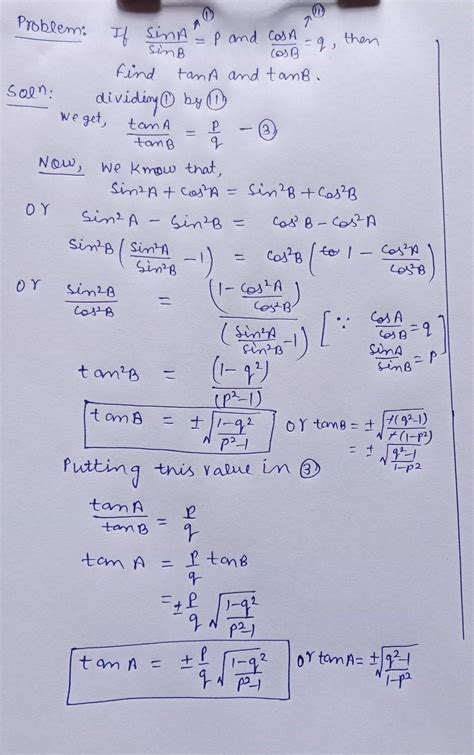 Problem: If sinA/sinB = P and cosA/cosB = q, then
① ⑪
find tanA and tanB.
Soln: dividing ① by ⑪
we get, tanA/tanB = P/q — ③
Now, we know that,
Sin²A + cos²A = Sin²B + cos²B
or Sin²A - Sin²B = cos²B - cos²A
Sin²B (Sin²A/Sin²B - 1) = cos²B (1 - cos²A/cos²B)
or Sin²B/cos²B = (1 - cos²A/cos²B)/(Sin²A/Sin²B - 1) [∵ cosA/cosB = q
sinA/sinB = P]
tan²B = (1-q²)/(p²-1)
tanB = ± √(1-q²/p²-1) or tanB = ± √(+(q²-1)/+(1-p²))
= ± √(q²-1/1-p²)
Putting this value in ③
tanA/tanB = P/q
tan A = P/q tanB
= ± P/q √(1-q²/p²-1)
tan A = ± P/q √(1-q²/p²-1) or tanA = ± √(q²-1/1-p²)